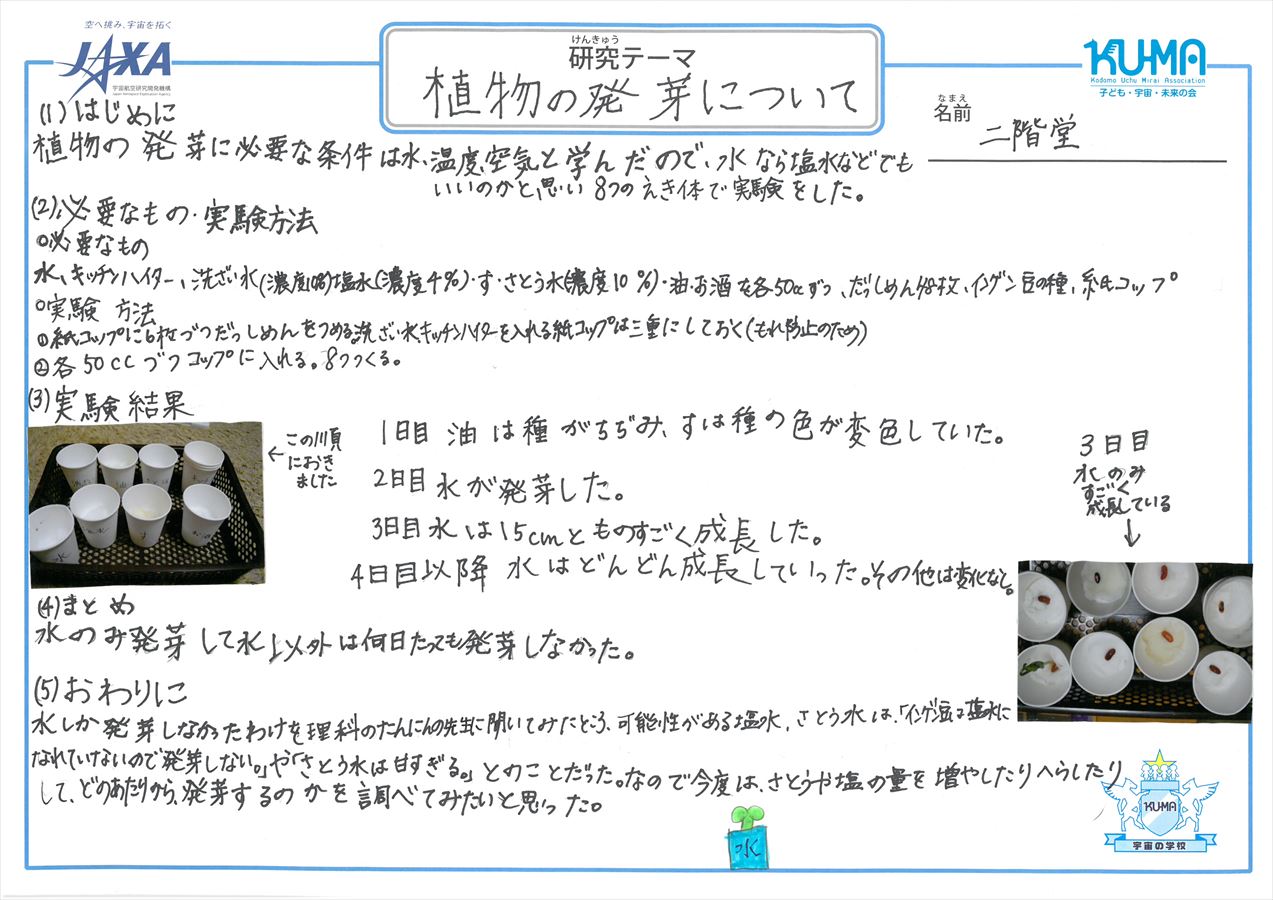 空へ挑み、宇宙を拓く
JAXA
宇宙航空研究開発機構
Japan Aerospace Exploration Agency
けんきゅう
研究テーマ
植物の発芽について
KUMA
Kodomo Uchu Mirai Association
子ども・宇宙・未来の会
なまえ
名前
二階堂
(1)はじめに
植物の発芽に必要な条件は水、温度、空気と学んだので、水なら塩水などでも
いいのかと思い8つのえき体で実験をした。
(2)必要なもの・実験方法
○必要なもの
水、キッチンハイター、洗ざい水(濃度10%)塩水(濃度4%)・す・さとう水(濃度10%)・油・お酒を各50ccずつ、だっしめん48枚、インゲン豆の種、紙コップ
○実験方法
①紙コップに6枚づつだっしめんをつめる。洗ざい水、キッチンハイターを入れる紙コップは三重にしておく(もれ防止のため)
②各50ccづつコップに入れる。8つつくる。
(3)実験結果
←この順
におき
ました
1日目 油は種がちぢみ、すは種の色が変色していた。
2日目 水が発芽した。
3日目 水は15cmとものすごく成長した。
4日目以降 水はどんどん成長していった。その他は変化なし。
3日目
水のみ
すごく
成長している
↓
水
す
(4)まとめ
水のみ発芽して水以外は何日たっても発芽しなかった。
(5)おわりに
水しか発芽しなかったわけを理科のたんにんの先生に聞いてみたところ、可能性がある塩水、さとう水は、「インゲン豆は塩水に
なれていないので発芽しない。」や「さとう水は甘すぎる。」とのことだった。なので今度は、さとうや塩の量を増やしたりへらしたり
して、どのあたりから、発芽するのかを調べてみたいと思った。
水
KUMA
宇宙の学校